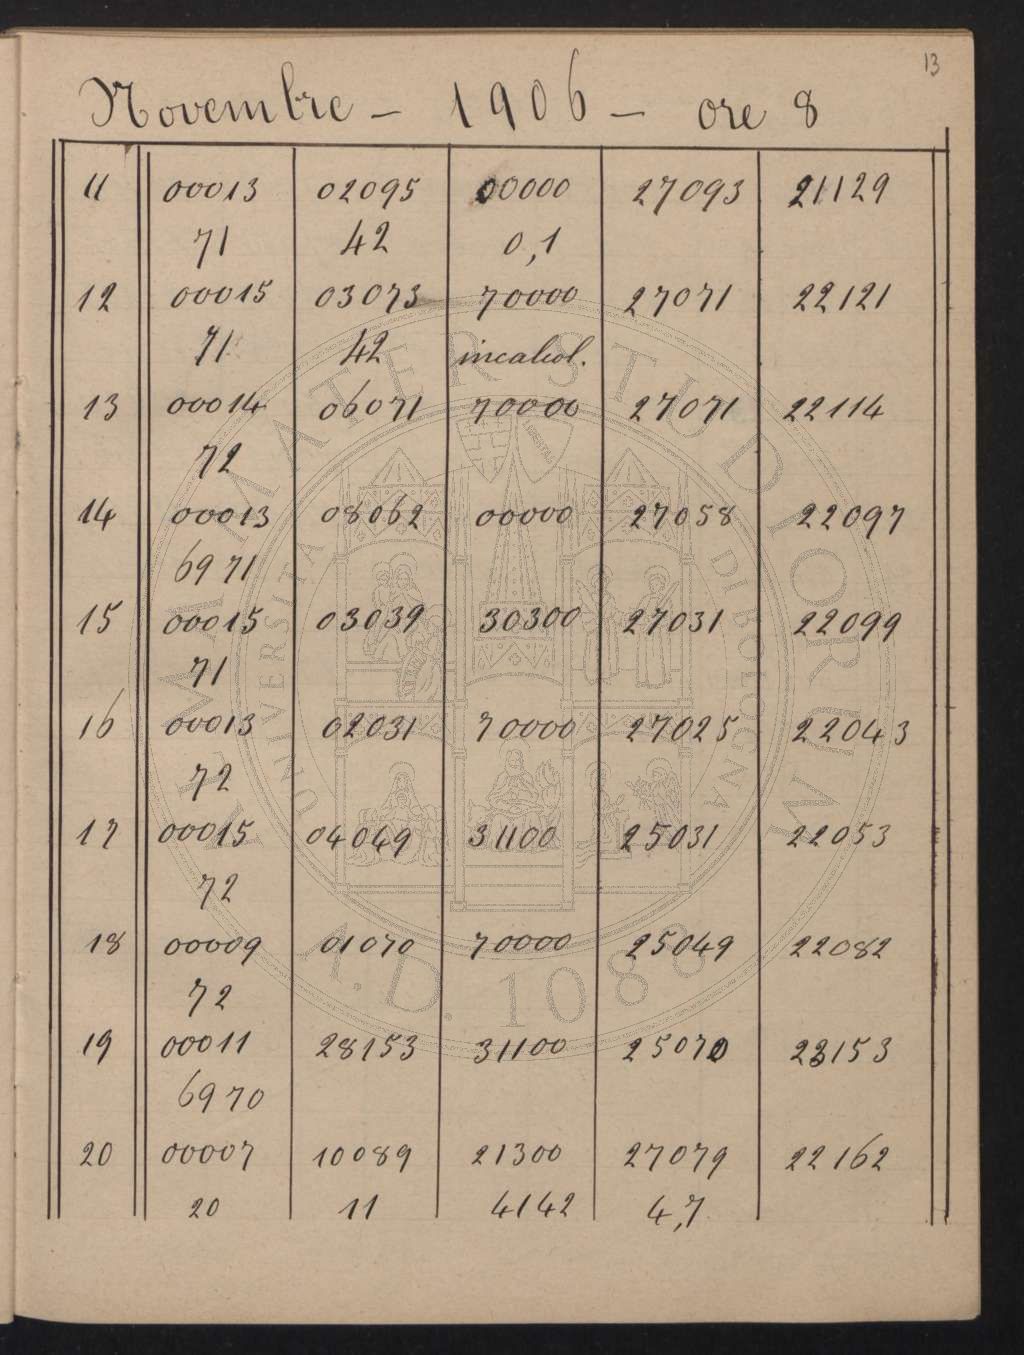 13
Novembre - 1906 - ore 8
11 00013 02095 00000 27093 21129
71 42 0,1
12 00015 03073 70000 27071 22121
71 42 incalcol.
13 00014 06071 70000 27071 22114
72
14 00013 08062 00000 27058 22097
69 71
15 00015 03039 30300 27031 22099
71
16 00013 02031 70000 27025 22043
72
17 00015 04049 31100 25031 22053
72
18 00009 01070 70000 25049 22082
72
19 00011 28153 31100 25070 22153
69 70
20 00007 10089 21300 27079 22162
20 11 4142 4,7
ALMA MATER STUDIORUM
UNIVERSITA DI BOLOGNA
A.D. 1088